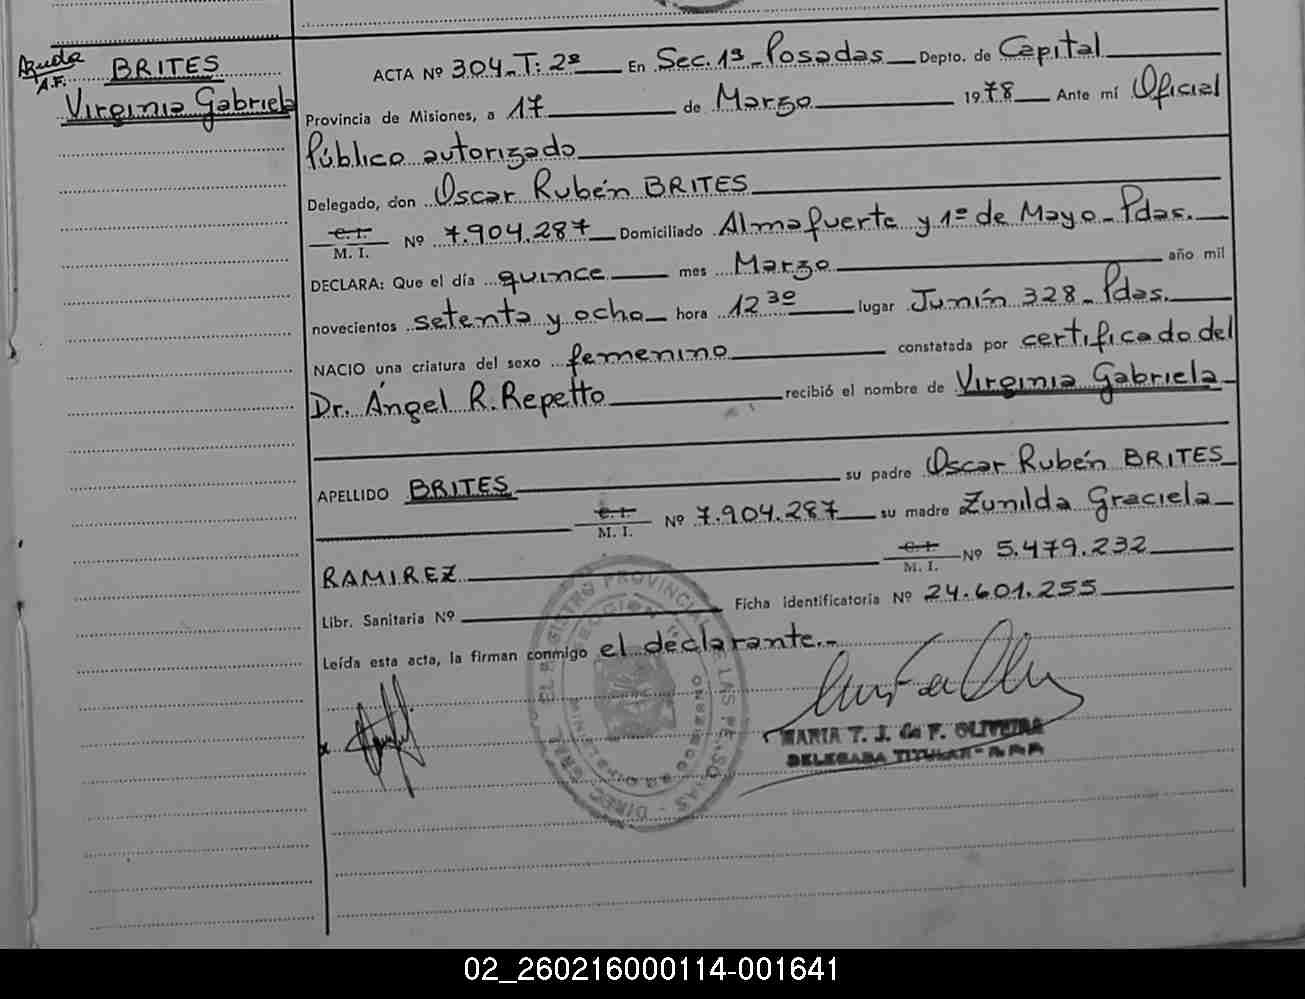 Ayuda
A.F.
BRITES
Virginia Gabriela
ACTA Nº 304_T: 2º En Sec. 1ª_Posadas Depto. de Capital
Provincia de Misiones, a 17 de Marzo 1978 Ante mí Oficial
Público autorizado
Delegado, don Oscar Rubén BRITES
C. I.
M. I. Nº 7.904.287 Domiciliado Almafuerte y 1º de Mayo_Pdas.
DECLARA: Que el día quince mes Marzo año mil
novecientos setenta y ocho hora 12 30 lugar Junín 328_Pdas.
NACIO una criatura del sexo femenino constatada por certificado del
Dr. Ángel R. Repetto recibió el nombre de Virginia Gabriela
APELLIDO BRITES su padre Oscar Rubén BRITES
C. I.
M. I. Nº 7.904.287 su madre Zunilda Graciela
RAMIREZ
C. I.
M. I. Nº 5.479.232
Libr. Sanitaria Nº Ficha identificatoria Nº 24.601.255
Leída esta acta, la firman conmigo el declarante.-
REGISTRO PROVINCIAL DE LAS PERSONAS
MARIA T. J. de F. OLIVEIRA
DELEGADA TITULAR
02_260216000114-001641